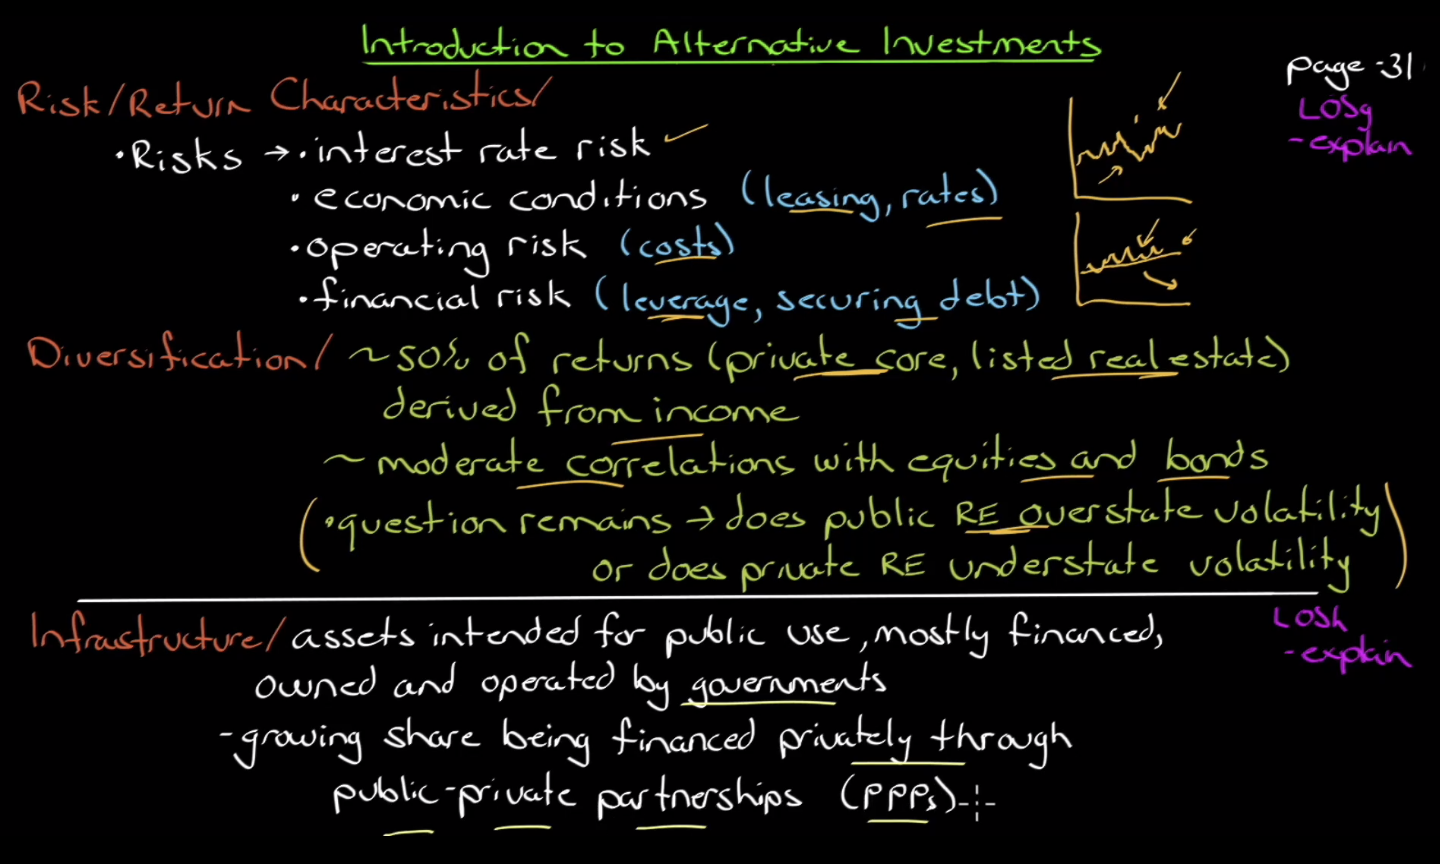 Introduction to Alternative Investments
page -31
Risk/Return Characteristics/
LOSg
-explain
•Risks → •interest rate risk
•economic conditions (leasing, rates)
•operating risk (costs)
•financial risk (leverage, securing debt)
Diversification/ ~50% of returns (private core, listed real estate)
derived from income
~ moderate correlations with equities and bonds
(•question remains → does public RE overstate volatility
or does private RE understate volatility)
LOSh
-explain
Infrastructure/ assets intended for public use, mostly financed,
owned and operated by governments
-growing share being financed privately through
public-private partnerships (PPPs)-